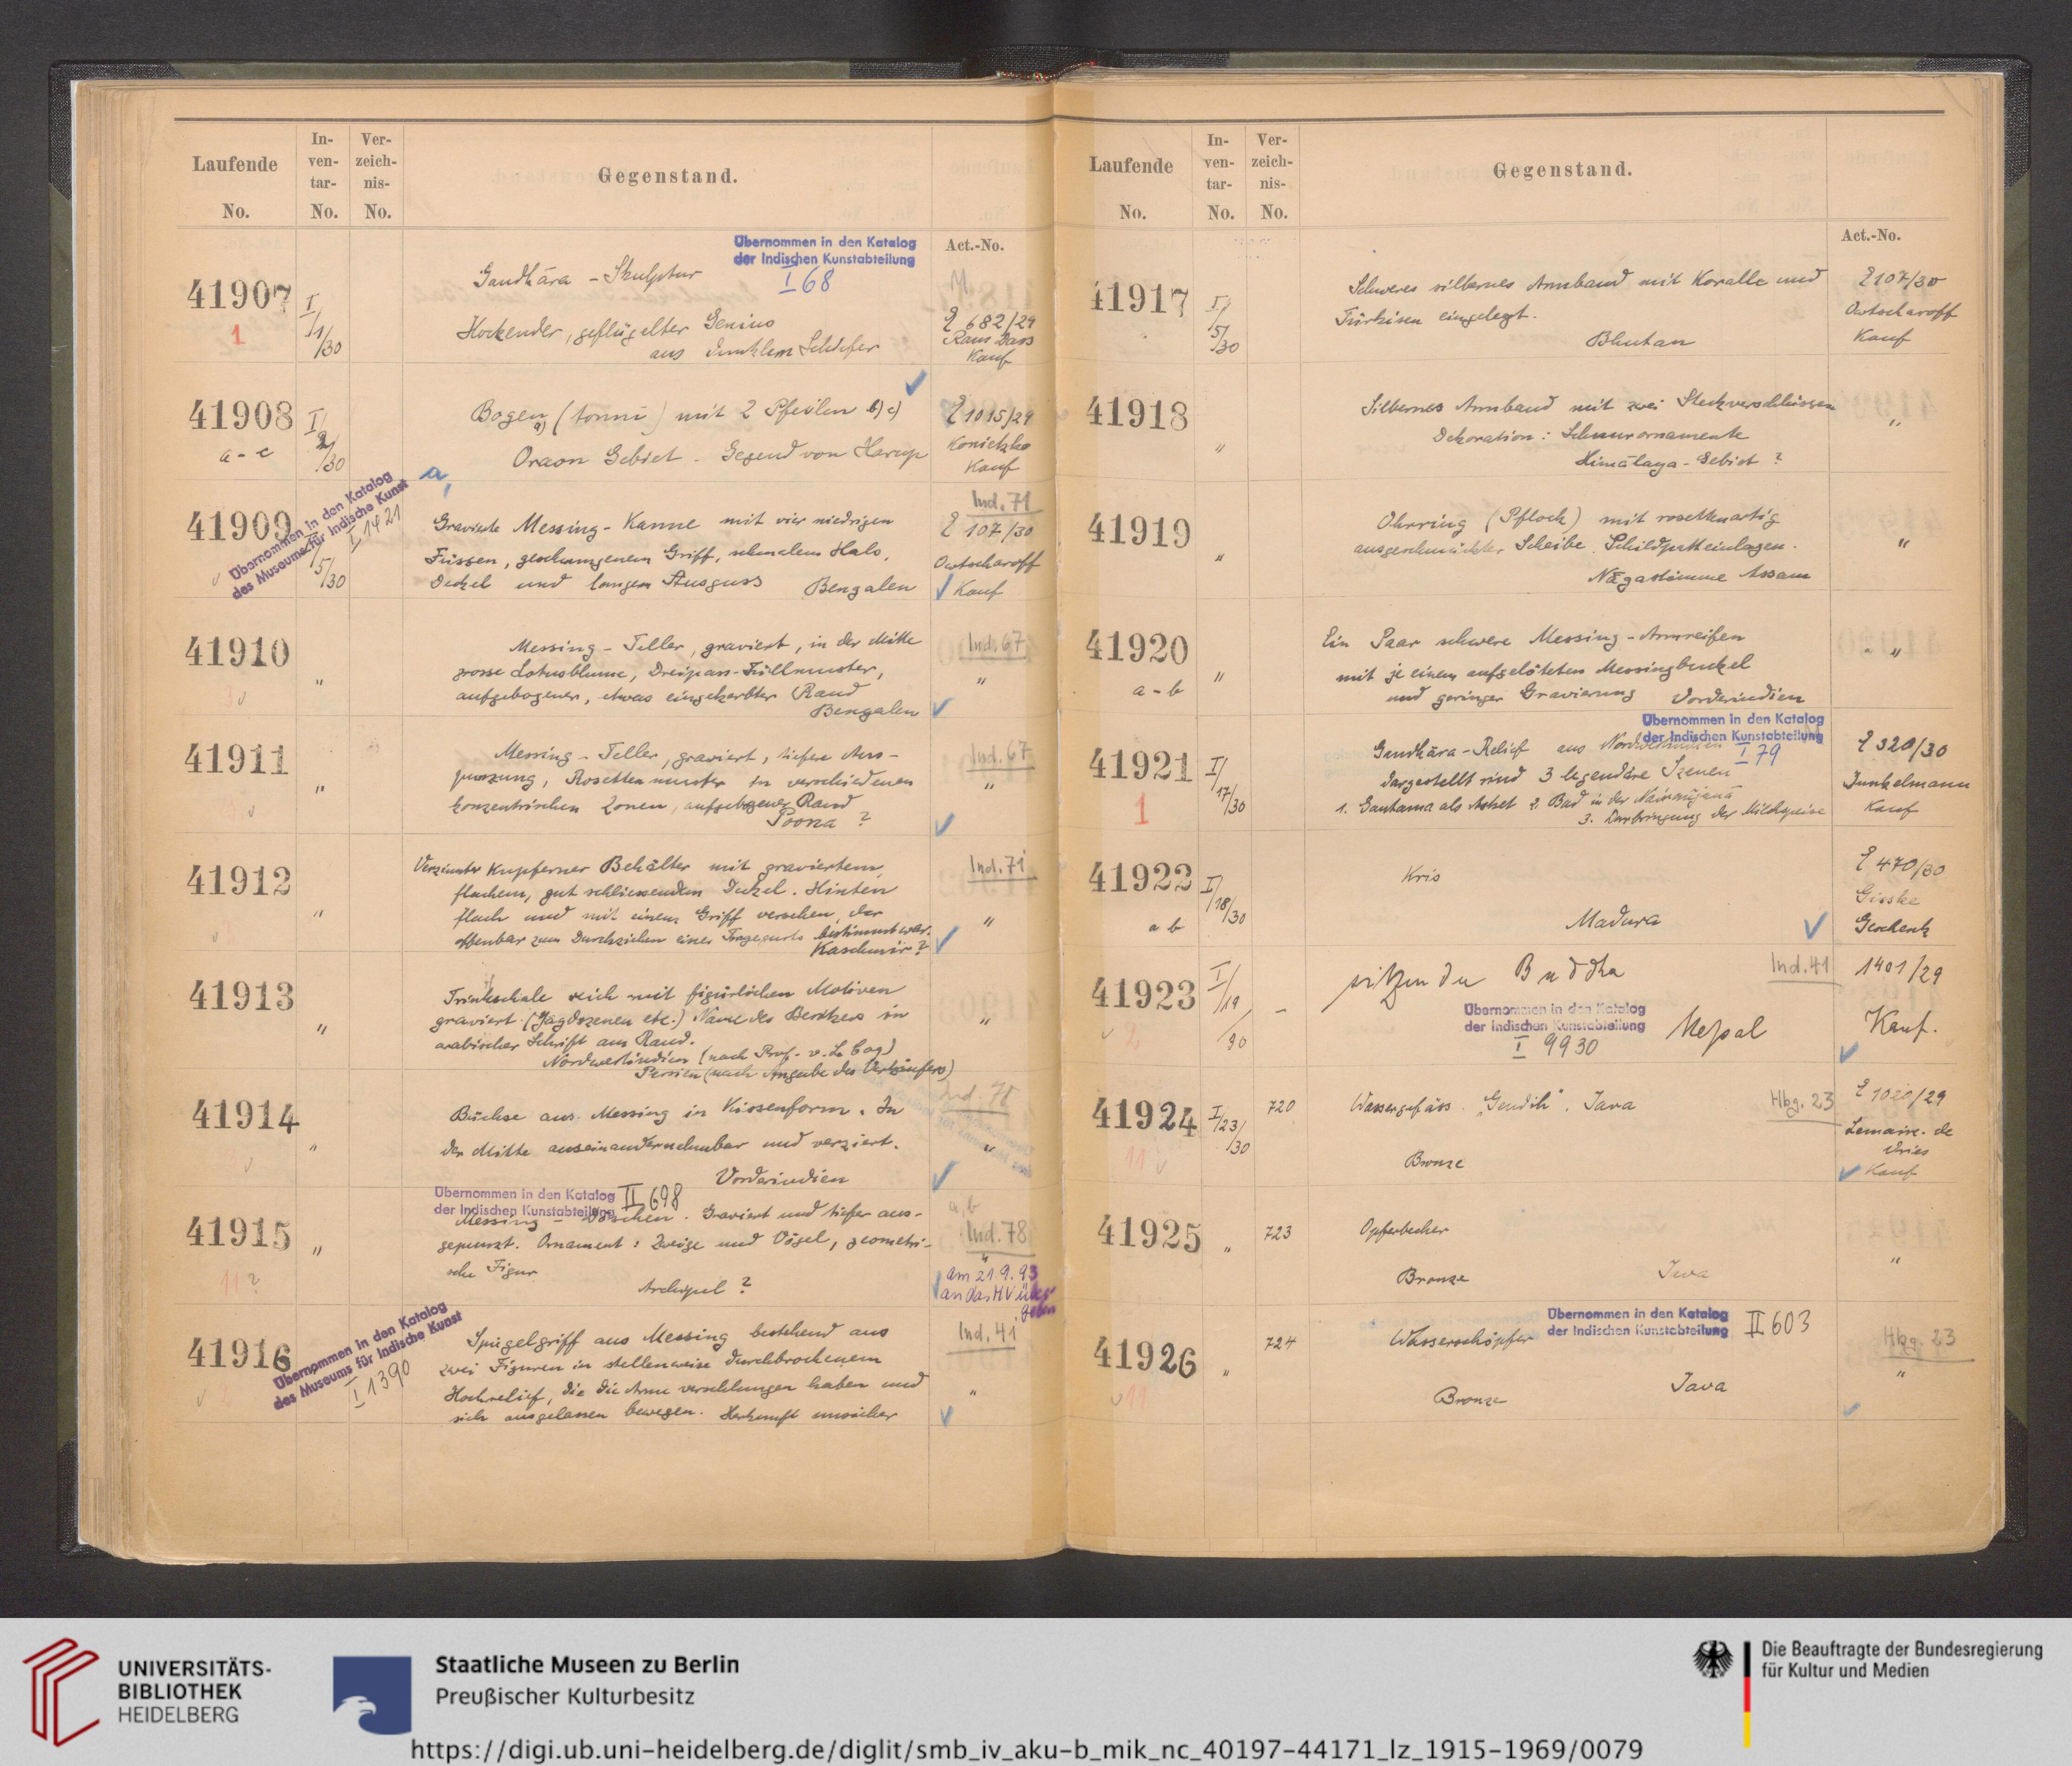 Laufende
No.
In-
ven-
tar-
No.
Ver-
zeich-
nis-
No.
Gegenstand.
Act.-No.
41907
1
I/
11/30
Übernommen in den Katalog
der Indischen Kunstabteilung
I 68
Gandhāra - Skulptur
Hockender, geflügelter Genius
aus dunklem Schiefer
M
E 682/29
Ram Dass
Kauf
41908
a - c
I/
2/30
Bogen (tonni) mit 2 Pfeilen b) c)
a)
Oraon Gebiet. Gegend von Harup
E 1015/29
Konietzko
Kauf
41909
Übernommen in den Katalog
des Museums für Indische Kunst
I 1421
5/30
a,
Gravierte Messing - Kanne mit vier niedrigen
Füssen, geschwungenem Griff, schmalem Hals,
Deckel und langem Ausguss Bengalen
Ind. 71
E 107/30
Owtscharoff
Kauf
41910
"
Messing - Teller, graviert, in der Mitte
grosse Lotusblume, Dreipass-Füllmuster,
aufgebogener, etwas eingekerbter Rand
Bengalen
Ind. 67
"
41911
"
Messing - Teller, graviert, tiefere Aus-
punzung, Rosettenmuster in verschiedenen
konzentrischen Zonen, aufgebogener Rand
Poona ?
Ind. 67
"
41912
"
Verzinnter kupferner Behälter mit graviertem,
flachem, gut schliessendem Deckel. Hinten
flach und mit einem Griff versehen, der
offenbar zum Durchziehen eines Tragegurts bestimmt war.
Kaschmir ?
Ind. 71
"
41913
"
Trinkschale reich mit figürlichen Motiven
graviert (Jagdszenen etc.) Name des Besitzers in
arabischer Schrift am Rand.
Nordwestindien (nach Prof. v. Le Coq)
Persien (nach Angabe des Verkäufers)
"
41914
"
Büchse aus Messing in Kissenform. In
der Mitte auseinandernehmbar und verziert.
Vorderindien
"
41915
11 ?
"
Übernommen in den Katalog
der Indischen Kunstabteilung
II 698
Messing - Döschen. Graviert und tiefer aus-
gepunzt. Ornament: Zweige und Vögel, geometri-
sche Figur
Archipel ?
a, b
Ind. 78
"
am 21.9.93
an das MV über
geben
41916
Übernommen in den Katalog
des Museums für Indische Kunst
I 1390
Spiegelgriff aus Messing bestehend aus
zwei Figuren in stellenweise durchbrochenem
Hochrelief, die die Arme verschlungen haben und
sich ausgelassen bewegen. Herkunft unsicher
Ind. 41
"
Laufende
No.
In-
ven-
tar-
No.
Ver-
zeich-
nis-
No.
Gegenstand.
Act.-No.
41917
I/
5/30
Schweres silbernes Armband mit Koralle und
Türkisen eingelegt.
Bhutan
E 107/30
Owtscharoff
Kauf
41918
"
Silbernes Armband mit zwei Steckverschlüssen
Dekoration: Schnurornamente
Himālaya - Gebiet ?
"
41919
"
Ohrring (Pflock) mit rosettenartig
ausgeschmückter Scheibe. Schildpatteinlagen.
Nāgastämme Assam
"
41920
a - b
"
Ein Paar schwere Messing - Armreifen
mit je einem aufgelöteten Messingbuckel
und geringer Gravierung Vorderindien
"
41921
1
I/
17/30
Übernommen in den Katalog
der Indischen Kunstabteilung
I 79
Gandhāra - Relief aus
dargestellt sind 3 legendäre Szenen
1. Gautama als Asket 2. Bad in der Nairañjanā
3. Darbringung der Milchspeise
E 320/30
Dunkelmann
Kauf
41922
a b
I/
18/30
Kris
Madura
E 470/30
Gieske
Geschenk
41923
2
I/
19/
30
-
sitzender Buddha
Übernommen in den Katalog
der Indischen Kunstabteilung
I 9930
Nepal
Ind. 41
1401/29
Kauf.
41924
11
I/
23/
30
720
Wassergefäss. „Gendih". Java
Bronze
Hbg. 23
E 1020/29
Lemaire - de
Vries
Kauf
41925
"
723
Opferbecher
Bronze
Java
"
41926
11
"
724
Wasserschöpfer
Bronze
Übernommen in den Katalog
der Indischen Kunstabteilung
II 603
Java
Hbg. 23
"
UNIVERSITÄTS-
BIBLIOTHEK
HEIDELBERG
Staatliche Museen zu Berlin
Preußischer Kulturbesitz
Die Beauftragte der Bundesregierung
für Kultur und Medien
https://digi.ub.uni-heidelberg.de/diglit/smb_iv_aku-b_mik_nc_40197-44171_lz_1915-1969/0079